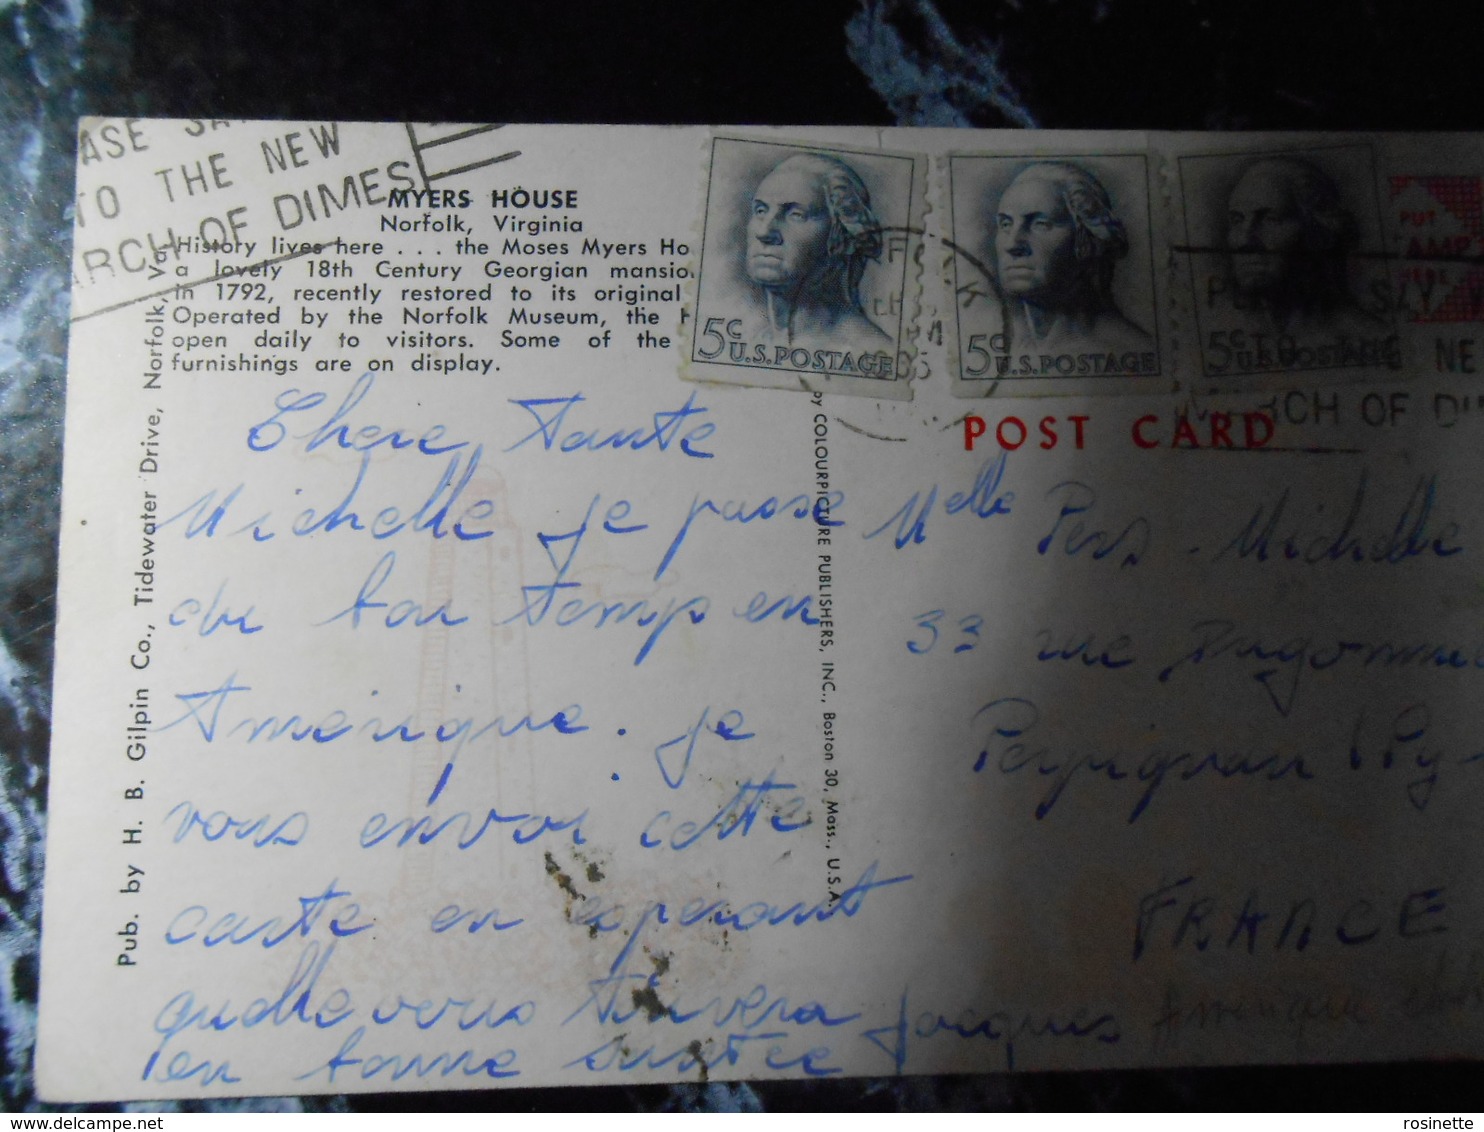 ASE SA
TO THE NEW
ARCH OF DIMES
MYERS HOUSE
Norfolk, Virginia
History lives here . . . the Moses Myers Ho
a lovely 18th Century Georgian mansio
in 1792, recently restored to its original
Operated by the Norfolk Museum, the
open daily to visitors. Some of the
furnishings are on display.
Pub. by H. B. Gilpin Co., Tidewater Drive, Norfolk, Va.
Chere Tante
Michelle je passe
du bon temp en
Amérique. je
vous envoi cette
carte en esperant
quelle vous truvera
en bonne suntée
Jacques
by COLOURPICTURE PUBLISHERS, INC., Boston 30, Mass., U.S.A.
5c U.S.POSTAGE
5c U.S.POSTAGE
5c U.S.POSTAGE
PUT
HERE
SAY
TO THE NE
MARCH OF DI
POST CARD
Melle Pers - Michelle
33 rue Dugommie
Perpignan (Py-
FRANCE
Amérique
rosinette